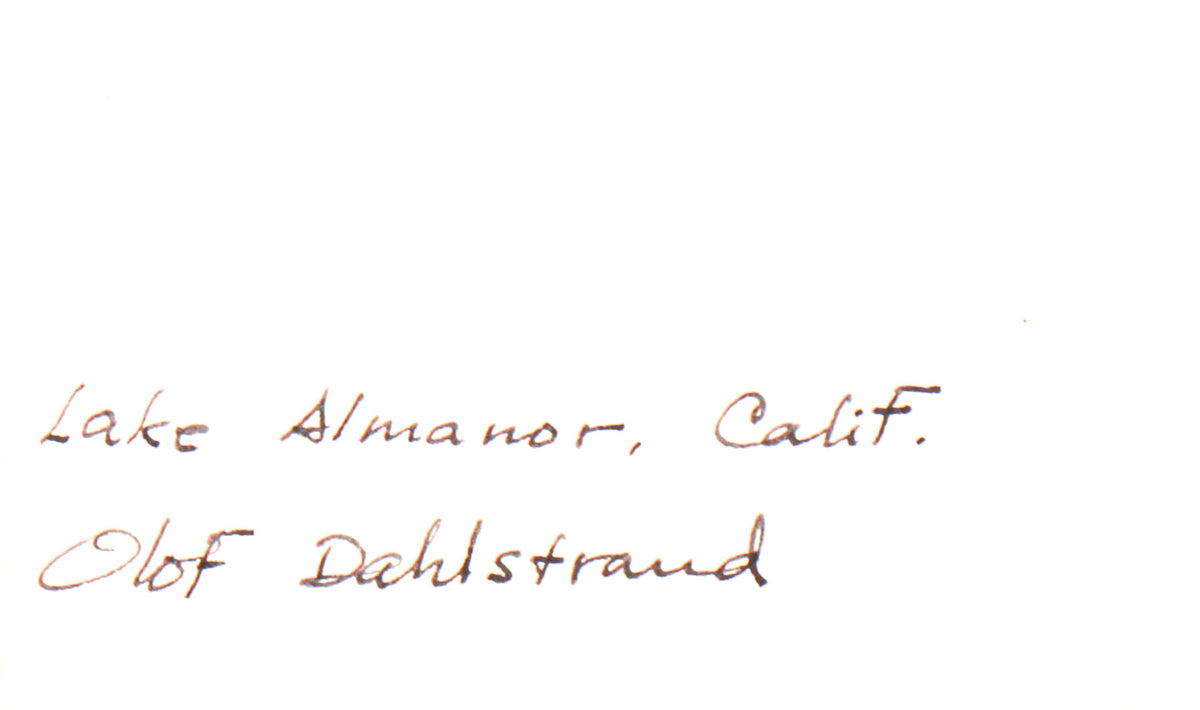 Lake Almanor, Calif.
Olof Dahlstrand